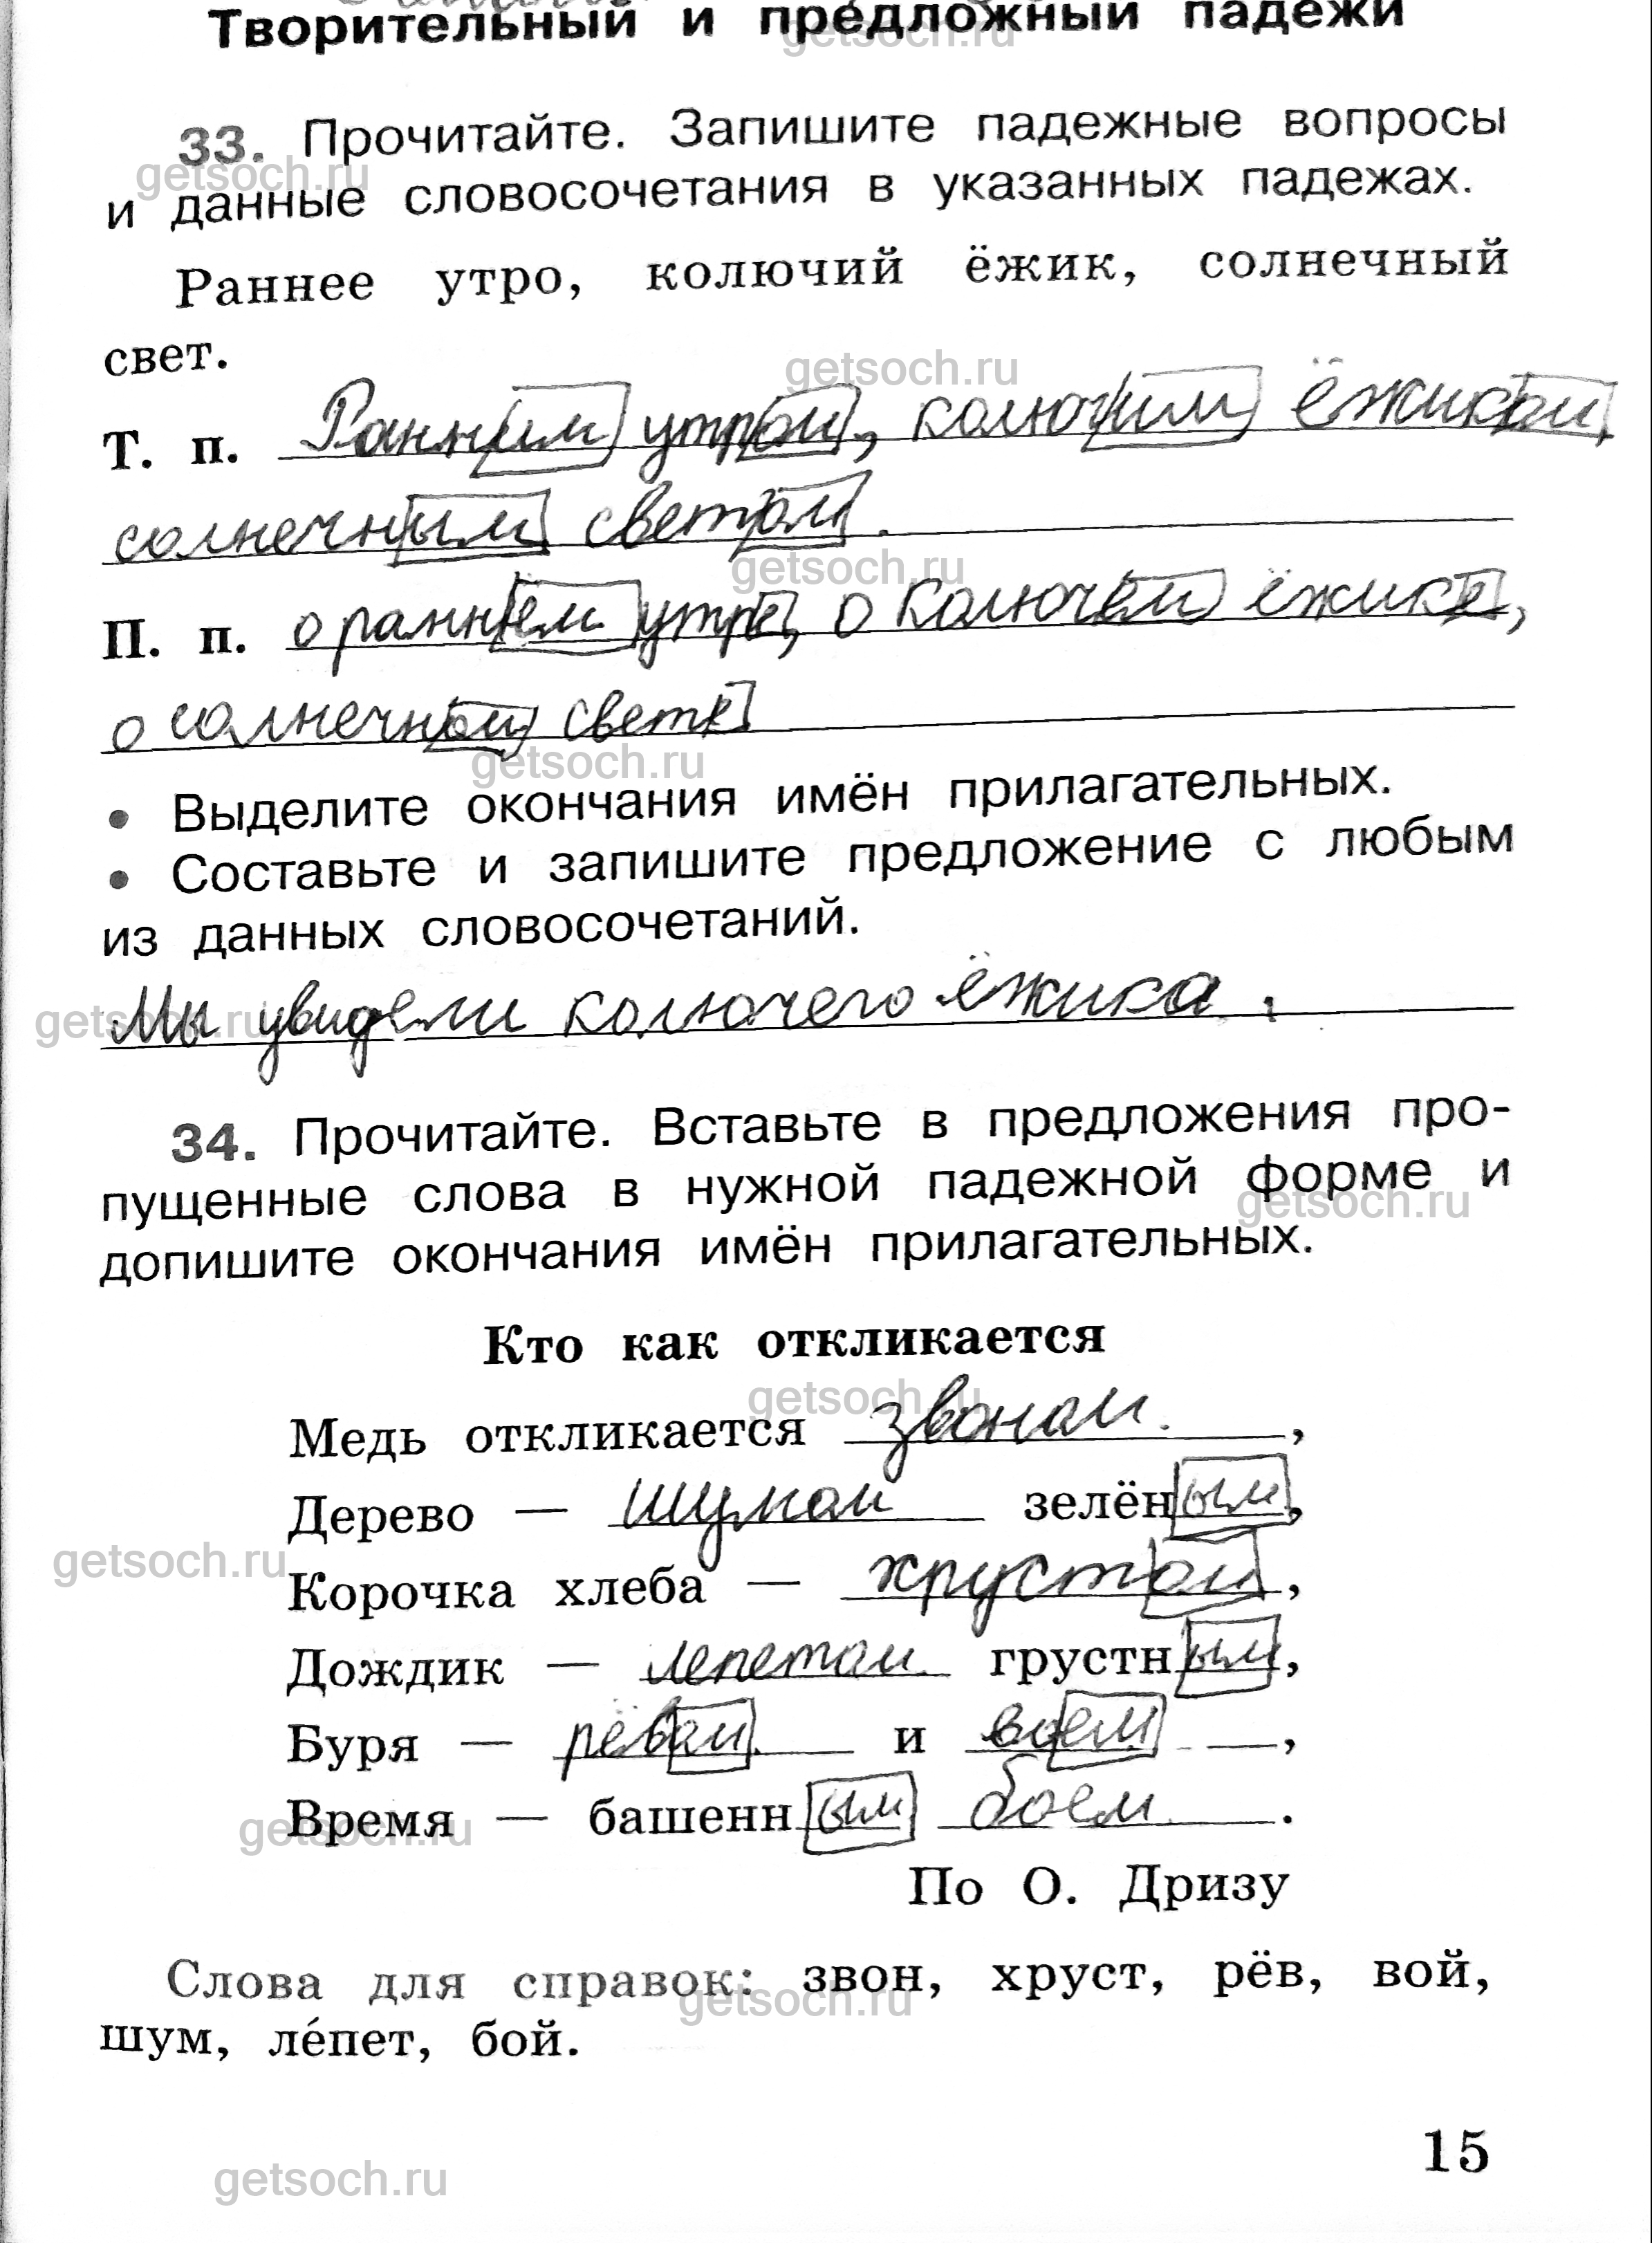 Творительный и предложный падежи
33. Прочитайте. Запишите падежные вопросы
и данные словосочетания в указанных падежах.
Раннее утро, колючий ёжик, солнечный
свет.
Т. п. Ранним утром, колючим ёжиком,
солнечным светом.
П. п. о раннем утре, о колючем ёжике,
о солнечном свете
• Выделите окончания имён прилагательных.
• Составьте и запишите предложение с любым
из данных словосочетаний.
Мы увидели колючего ёжика.
34. Прочитайте. Вставьте в предложения про-
пущенные слова в нужной падежной форме и
допишите окончания имён прилагательных.
Кто как откликается
Медь откликается звоном,
Дерево — шумом зелёным,
Корочка хлеба — хрустом,
Дождик — лепетом грустным,
Буря — рёвом и воем,
Время — башенным боем.
По О. Дризу
Слова для справок: звон, хруст, рёв, вой,
шум, ле́пет, бой.
15
getsoch.ru
getsoch.ru
getsoch.ru
getsoch.ru
getsoch.ru
getsoch.ru
getsoch.ru
getsoch.ru
getsoch.ru
getsoch.ru
getsoch.ru
getsoch.ru